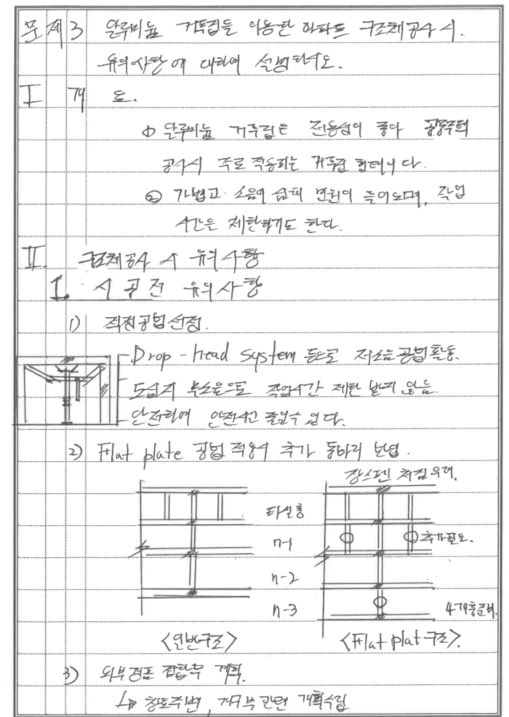 문제3 알루미늄 거푸집을 이용한 아파트 구조체공사 시.
유의사항에 대하여 설명하시오.
I 개 요.
① 알루미늄 거푸집은 전용성이 좋아 공동주택
공사시 주로 적용되는 거푸집 형태이다.
② 가볍고 소음이 심해 민원이 높으며, 작업
시간을 제한하기도 한다.
II. 구조체공사 시 유의사항
1. 시공전 유의사항
1) 적정공법선정.
Drop-head system 등으로 저소음공법활용.
도심지 부소음으로 작업시간 제한 받지 않음.
안전하여 안전사고 줄일수 있다.
2) Flat plate 공법 적용시 추가 동바리 보강.
장스팬 처짐우려.
타설층
n-1 추가필요.
n-2
n-3 4개층존치.
<일반구조> <Flat plat 구조>.
3) 외부 계획.
↳ 창호주변, 개구부 관련 계획수립